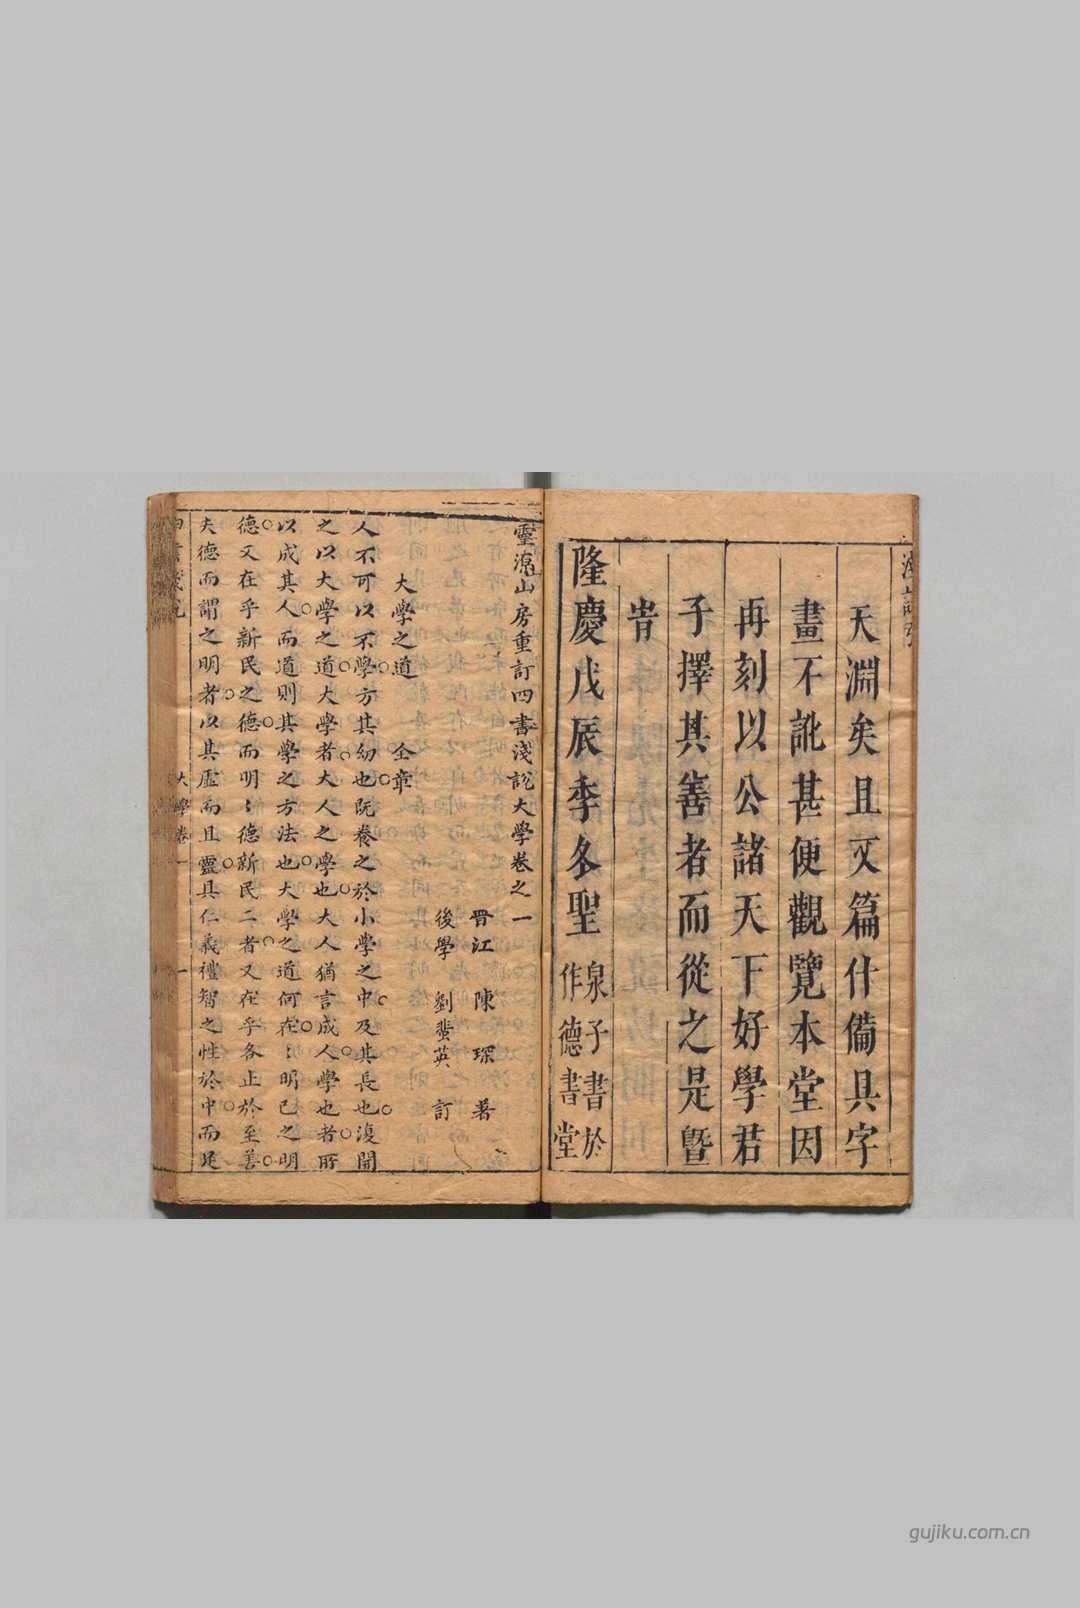 天淵矣且文篇什備具字
畫不訛甚便觀覽本堂因
再刻以公諸天下好學君
子擇其善者而從之是暨
旹
隆慶戊辰季冬聖泉子書於
作德書堂
靈源山房重訂四書淺說大學卷之一
晉江 陳琛 著
後學 劉蜚英 訂
大學之道 全章
人不可以不學方其幼也既養之於小學之中及其長也復開
之以大學之道大學者大人之學也大人猶言成人學也者所
以成其人而道則其學之方法也大學之道何在︰明己之明
德又在乎新民之德而明︰德新民二者又在乎各止於至善
夫德而謂之明者以其虛而且靈具仁義禮智之性於中而足
大學卷一
一
gujiku.com.cn